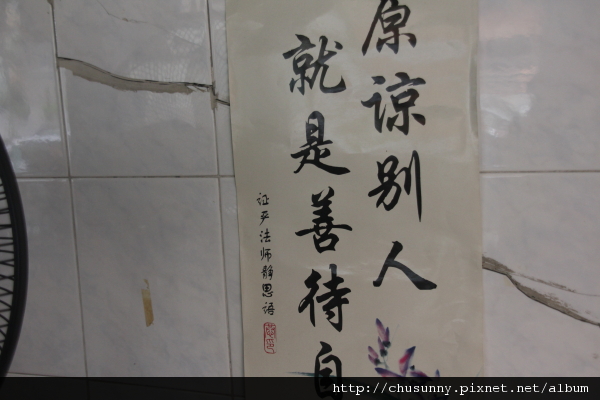 原谅别人
就是善待自
证严法师静思语
http://chusunny.pixnet.net/album